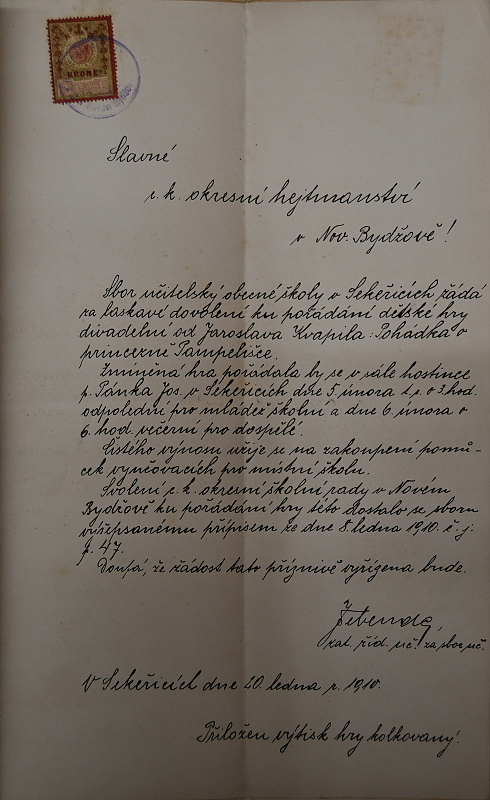 KRONE
Slavné
c. k. okresní hejtmanství
v Nov. Bydžově!
Sbor učitelský obecné školy v Sekeřicích žádá
za laskavé dovolení ku pořádání dětské hry
divadelní od Jaroslava Kvapila: Pohádka o
princezně Pampelišce.
Zmíněná hra pořádala by se v sále hostince
p. Pánka Jos. v Sekeřicích dne 5. února t. r. o 3. hod.
odpolední pro mládež školní a dne 6. února o
6. hod. večerní pro dospělé.
Čistého výnosu užije se na zakoupení pomů-
cek vyučovacích pro místní školu.
Svolení c. k. okresní školní rady v Novém
Bydžově ku pořádání hry této dostalo se sboru
výšepsanému přípisem ze dne 8. ledna 1910. č. j.
47.
Doufá, že žádost tato příznivě vyřízena bude.
zat. říd. uč. za sbor uč.
V Sekeřicích dne 20. ledna r. 1910.
Přiložen výtisk hry kolkovaný.